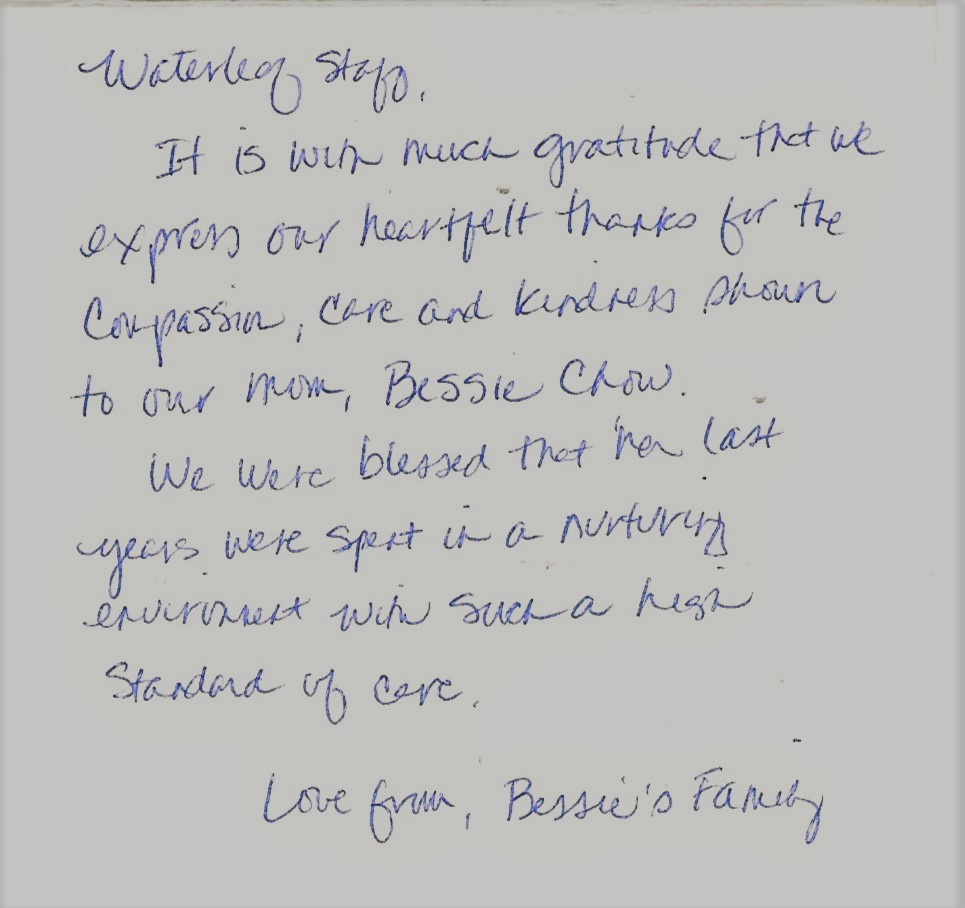 Waterleaf Staff,
It is with much gratitude that we
express our heartfelt thanks for the
Compassion, Care and kindness shown
to our mom, Bessie Chow.
We were blessed that her last
years were spent in a nurturing
environment with such a high
Standard of care.
Love from, Bessie's Family